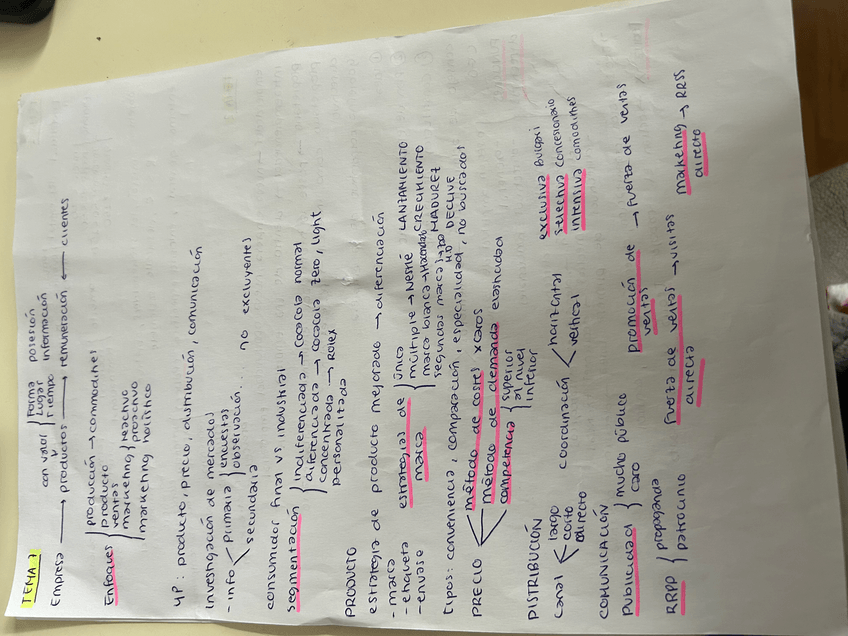 TEMA 7
con valor { Forma posesión
Lugar información
Tiempo
Empresa → productos → remuneración ← clientes
Enfoques { producción → commodities
producto
ventas
marketing { reactivo
proactivo
marketing holístico
4P: producto, precio, distribución, comunicación
Investigación de mercados
- info < primaria { encuestas
observación... no excluyentes
secundaria
consumidor final vs industrial
segmentación { indiferenciada → cocacola normal
diferenciada → cocacola zero, light
concentrada → Rolex
personalizada
PRODUCTO
estrategia de producto mejorado → diferenciación
- marca
- etiqueta
- envase
estrategias de marca { única
múltiple → Nestlé
marca blanca → Hacendado
segundas marcas
LANZAMIENTO
CRECIMIENTO
MADUREZ
DECLIVE
tipos: conveniencia, comparación, especialidad, no buscados
PRECIO < método de costes xcaros
método de demanda elasticidad
competencia { superior
al nivel
inferior
DISTRIBUCIÓN
canal < largo
corto
directo
coordinación < horizontal
vertical
exclusiva Bvlgari
selectiva concesionario
intensiva comodities
COMUNICACIÓN
Publicidad { mucho público
caro
promoción de ventas → fuerza de ventas
RRPP { propaganda
patrocinio
fuerza de ventas directa → visitas
marketing directo → RRSS